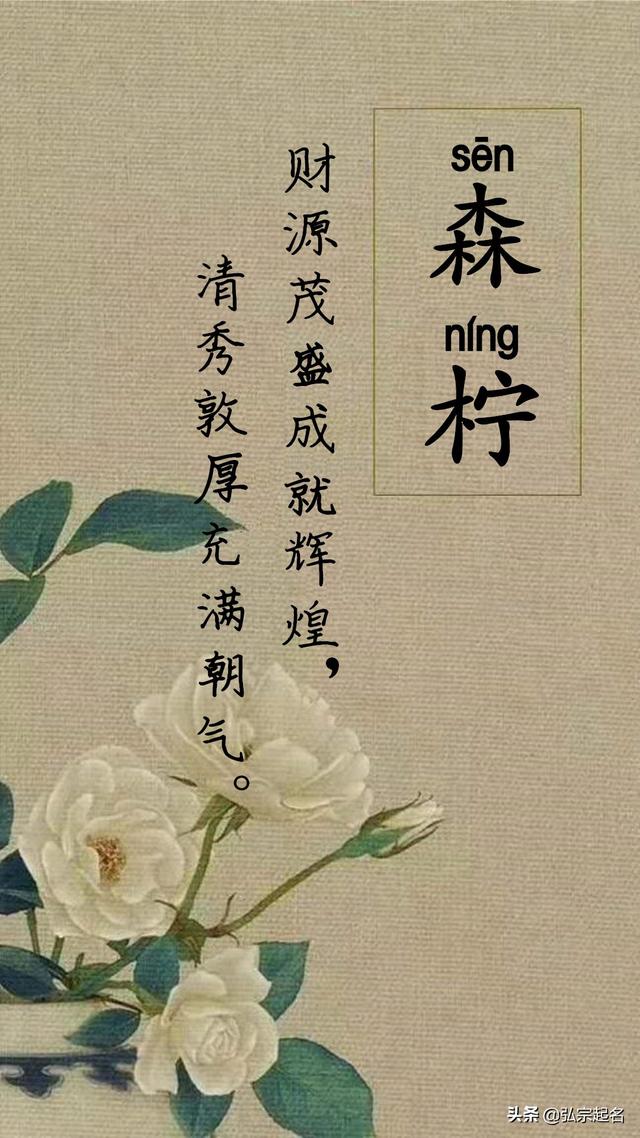 sēn
森
níng
柠
财源茂盛成就辉煌，
清秀敦厚充满朝气。
头条 @弘宗起名